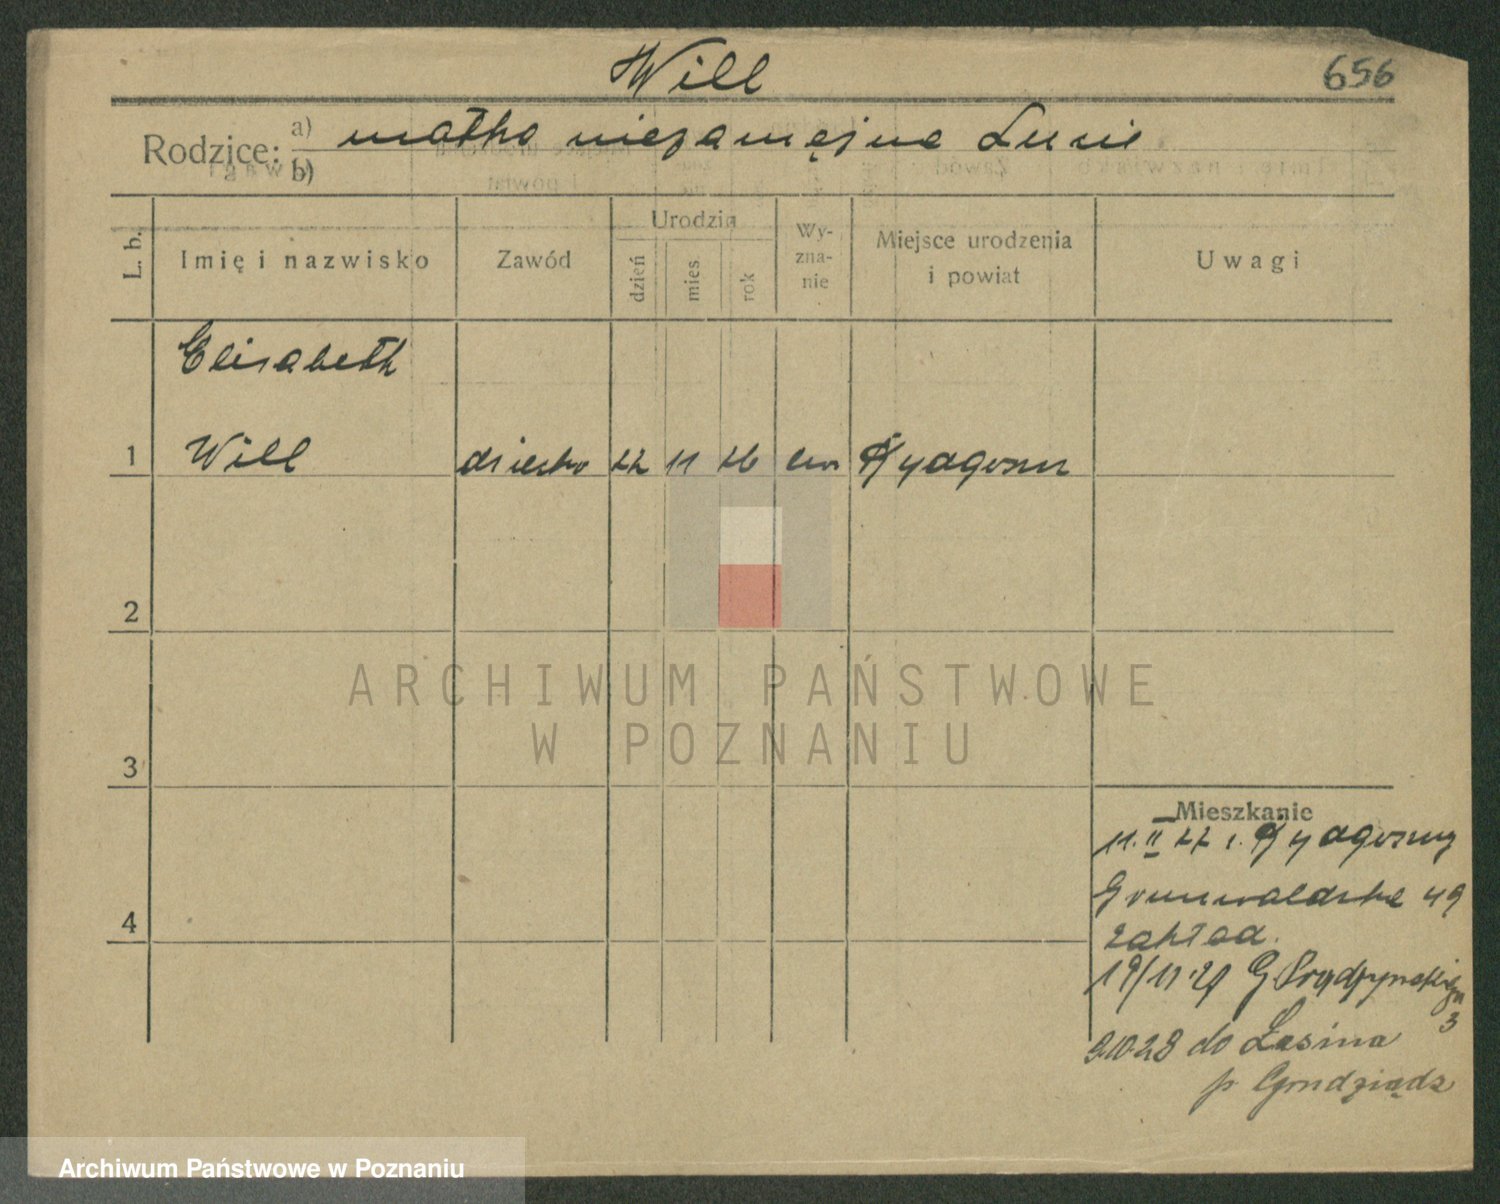 Will
656
Rodzice: a) matka niezamężna Lucie
b)
L. b.
Imię i nazwisko
Zawód
Urodzin
dzień
mies.
rok
Wy-
zna-
nie
Miejsce urodzenia
i powiat
Uwagi
Elisabeth
1 Will dziecko 22 11 26 ew Bydgoszcz
2
ARCHIWUM PAŃSTWOWE
W POZNANIU
3
Mieszkanie
11. II 27 z. Bydgoszczy
4 Grunwaldzka 49
zakład.
19/11 27 G Prądzyńskiego
3
9.10.28 do Lasina
p Grudziądz
Archiwum Państwowe w Poznaniu